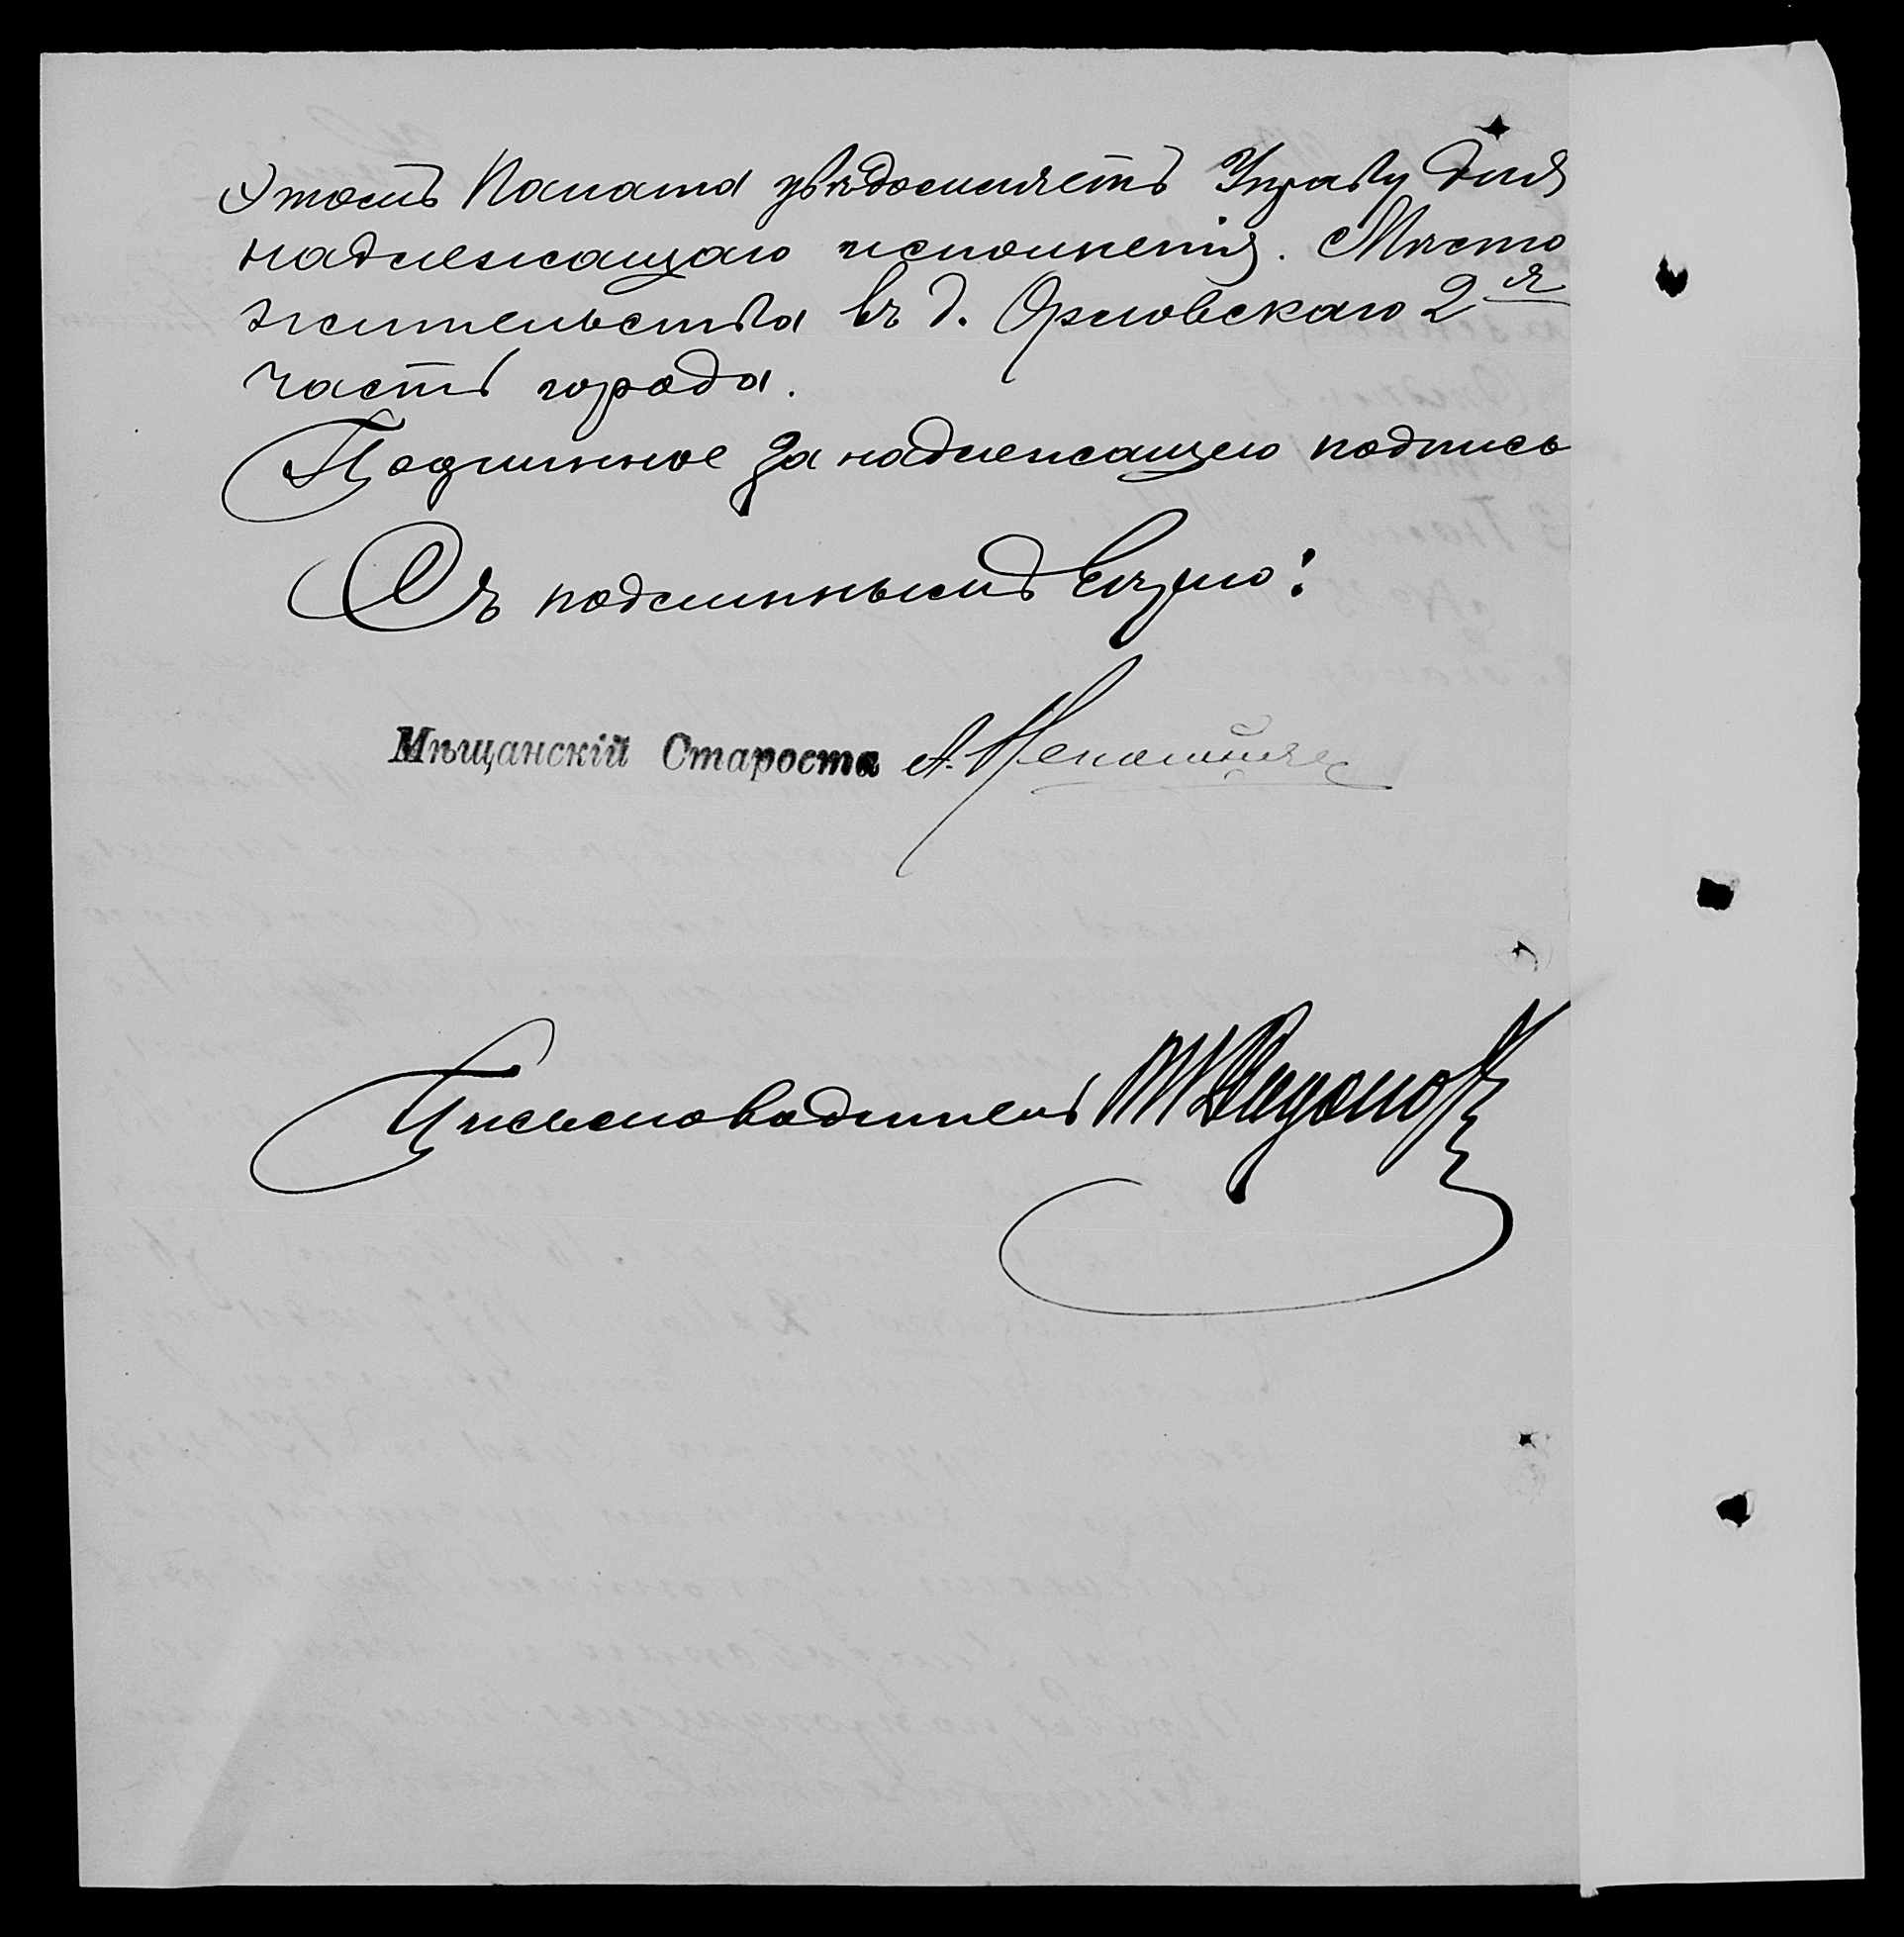 О томъ Палата увѣдомляетъ Управу для
надлежащаго исполненія. Мѣсто
жительства въ д. Орловскаго 2я
часть города.
Подлинное за надлежащею подпись
Съ подлиннымъ вѣрно:
Мѣщанскій Староста А.
Письмоводитель